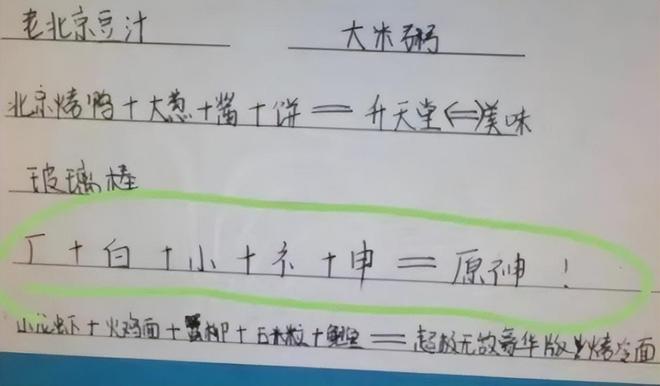 老北京豆汁 大米粥
北京烤鸭+大葱+酱+饼=升天堂⇔美味
玻璃棒
丆+白+小+礻+申=原神!
小龙虾+火鸡面+蟹柳+玉米粒+鲍鱼=超级无敌豪华版烤冷面